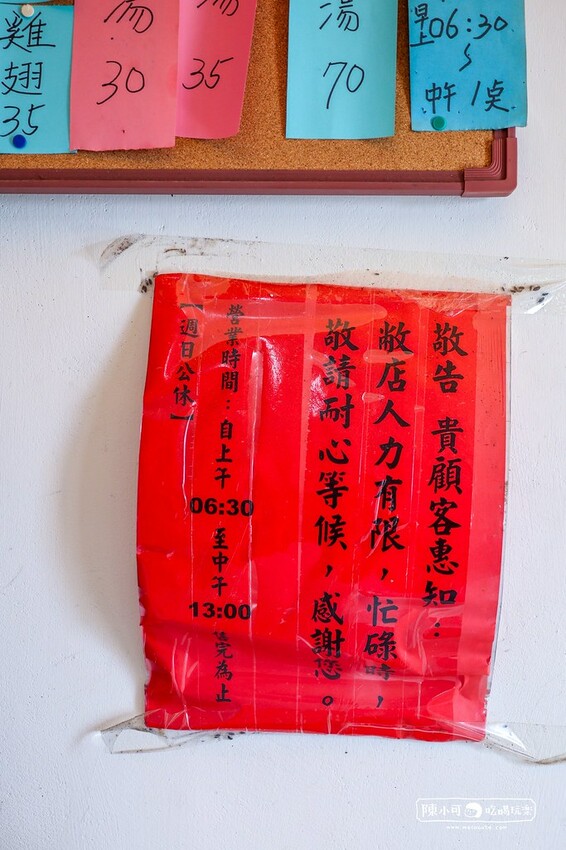 雞翅35
湯30
35
湯70
早06:30~中午1点
敬告 貴顧客惠知：
敝店人力有限，忙碌時，
敬請耐心等候，感謝您。
營業時間：自上午06:30至中午13:00售完為止
【週日公休】
陳小可 吃喝玩樂